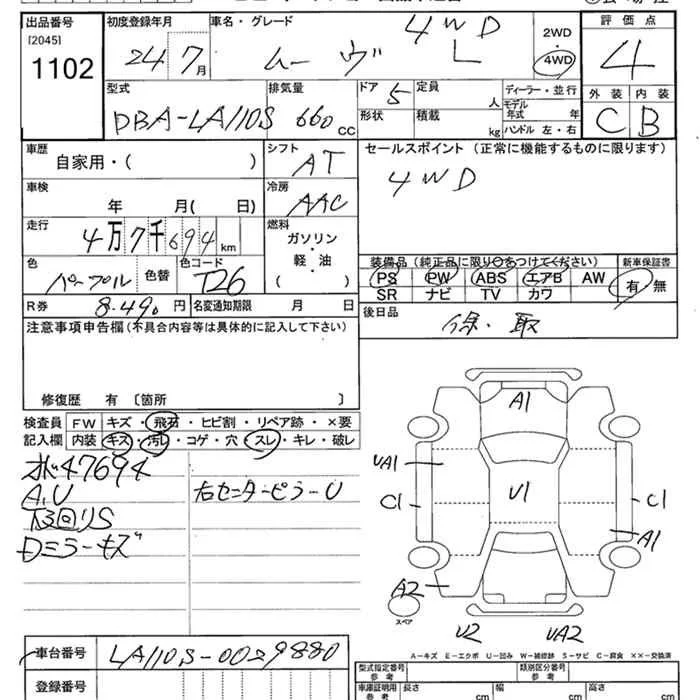 出品番号 初度登録年月 車名・グレード 4WD 2WD 評価点
[2045] 1102 24 7月 ムーヴ L 4WD 4
型式 排気量 ドア 5 定員 人 ディーラー・並行 外装 内装
DBA-LA110S 660 CC 形状 積載 kg モデル年式 年 ハンドル 左・右 C B
車歴 自家用・( ) シフト AT セールスポイント (正常に機能するものに限ります)
車検 年 月( 日) 冷房 AAC 4WD
走行 4万7千694 km 燃料 ガソリン・軽・油 ( )
色 パープル 色替 色コード T26
装備品 (純正品に限り○をつけてください) 新車保証書
PS PW ABS エアB AW 有・無
SR ナビ TV カワ
R券 8.490 円 名変通知期限 月 日 後日品 保・取
注意事項申告欄(不具合内容等は具体的に記入して下さい)
修復歴 有 〔箇所 〕
検査員 FW キズ・飛石・ヒビ割・リペア跡・×要
記入欄 内装 キズ・汚レ・コゲ・穴・スレ・キレ・破レ
47694
A.U 右センターピラーU
下回りS
Dミラーキズ
A1
UA1
C1 U1 C1
A1
A2
スペア
U2 UA2
A-キズ E-エクボ U-凹み W-補修跡 S-サビ C-腐食 ××-交換済
車台番号 LA110S-0029880
登録番号
型式指定番号 参考 類別区分番号 参考
車庫証明用 参考 長さ cm 幅 cm 高さ cm